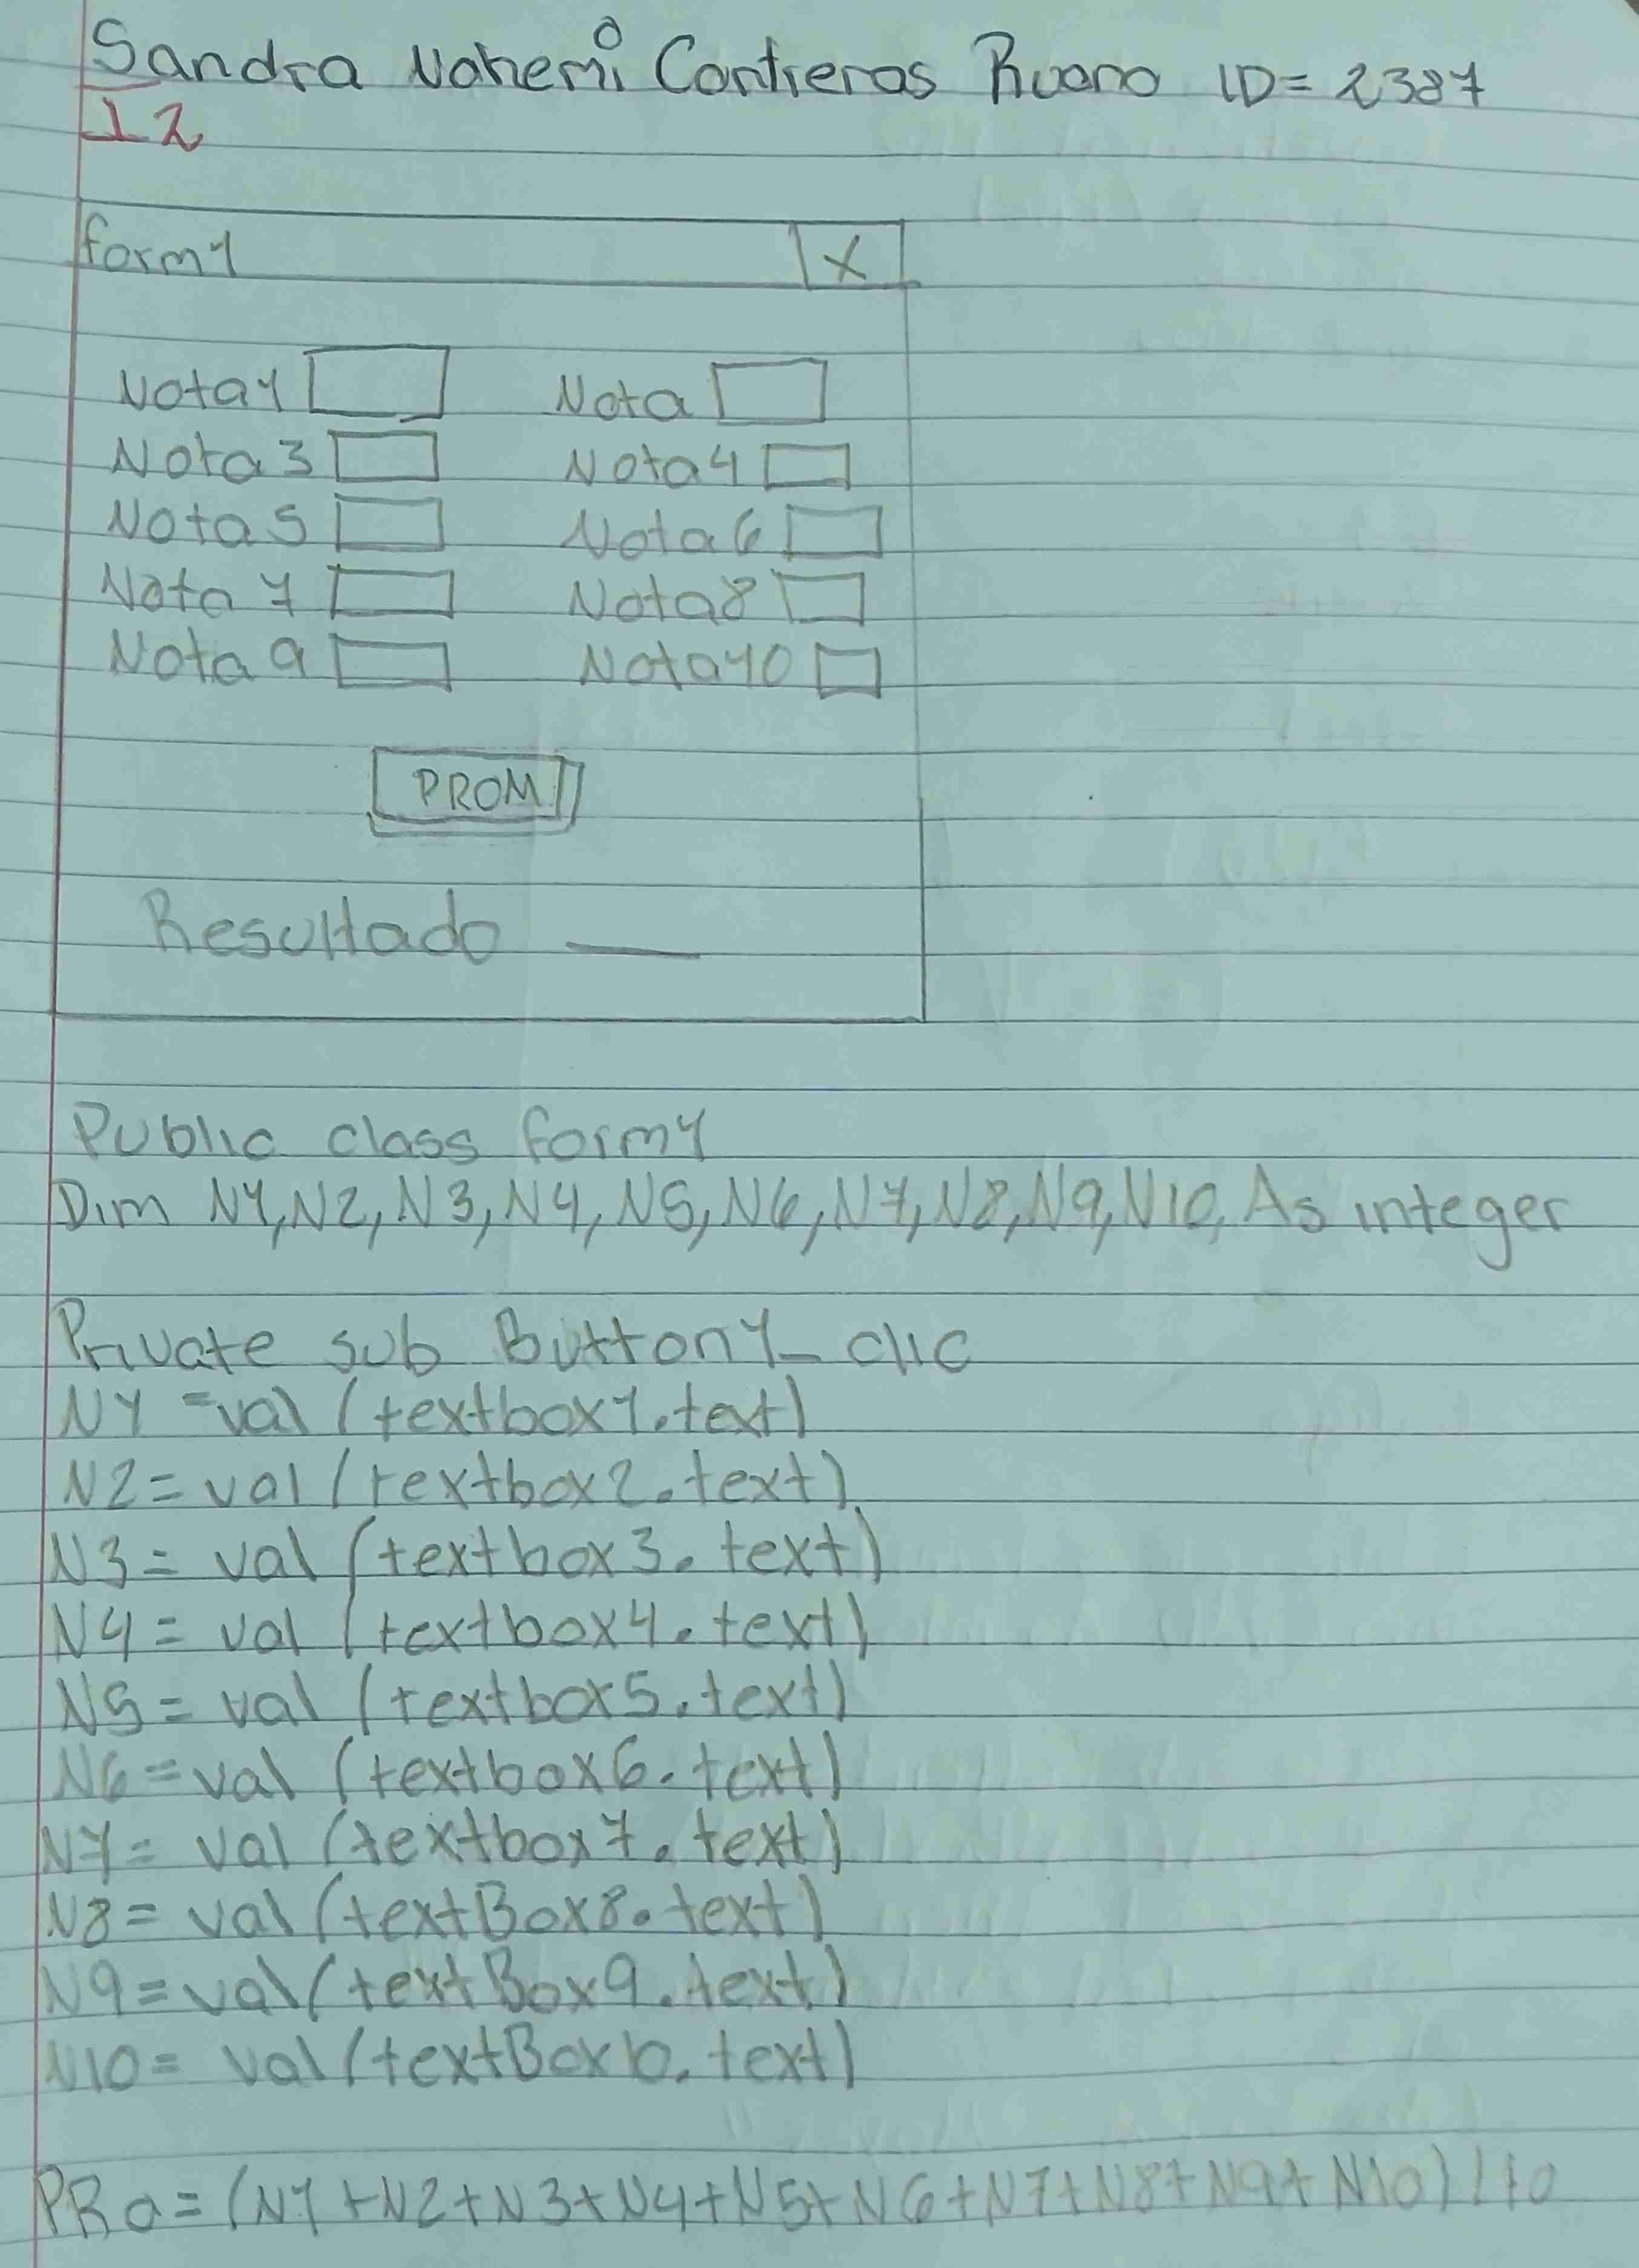 Sandra Nohemi Contreras Ruano ID= 2387
12
form1 X
Nota1 Nota
Nota 3 Nota4
Nota 5 Nota6
Nota 7 Nota8
Nota 9 Nota10
PROM
Resultado
Public class form1
Dim N1, N2, N3, N4, N5, N6, N7, N8, N9, N10, As integer
Private sub Button1_clic
N1 =val (textbox1.text)
N2= val (textbox2.text)
N3= val (textbox3.text)
N4= val (textbox4.text)
N5= val (textbox5.text)
N6=val (textbox6.text)
N7= val (textbox7.text)
N8= val (textBox8.text)
N9=val (textBox9.text)
N10= val (textBox10.text)
PRO=(N1+N2+N3+N4+N5+N6+N7+N8+N9+N10)/10